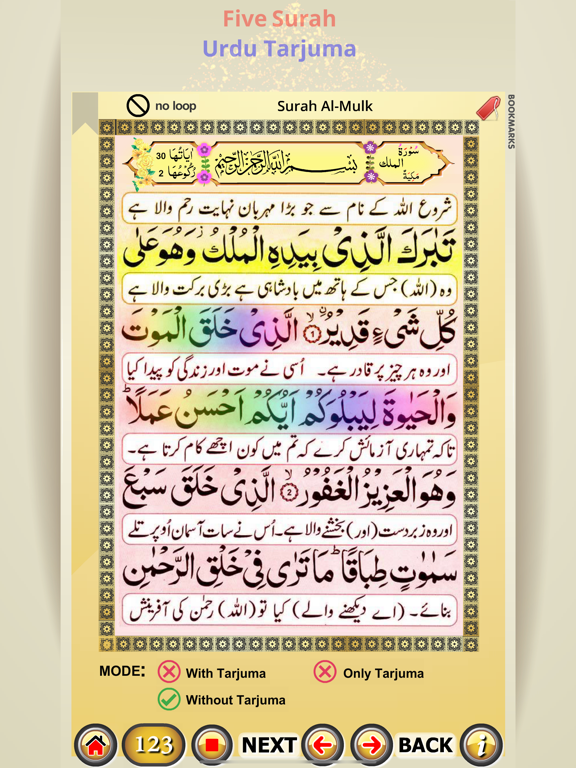 Five Surah
Urdu Tarjuma
no loop
Surah Al-Mulk
BOOKMARKS
سُوْرَةُ الملك مَكِيَّةٌ
بِسْمِ اللّٰهِ الرَّحْمٰنِ الرَّحِيْمِ
اٰيَاتُهَا 30
رُكُوْعُهَا 2
شروع اللہ کے نام سے جو بڑا مہربان نہایت رحم والا ہے
تَبٰرَكَ الَّذِىْ بِيَدِهِ الْمُلْكُ وَهُوَ عَلٰى
وہ (اللہ) جس کے ہاتھ میں بادشاہی ہے بڑی برکت والا ہے
كُلِّ شَىْءٍ قَدِيْرُۨ ۙ ۝۱ الَّذِىْ خَلَقَ الْمَوْتَ
اور وہ ہر چیز پر قادر ہے۔ اُسی نے موت اور زندگی کو پیدا کیا
وَالْحَيٰوةَ لِيَبْلُوَكُمْ اَيُّكُمْ اَحْسَنُ عَمَلًا ؕ
تاکہ تمہاری آزمائش کرے کہ تم میں کون اچھے کام کرتا ہے۔
وَهُوَ الْعَزِيْزُ الْغَفُوْرُ ۙ ۝۲ الَّذِىْ خَلَقَ سَبْعَ
اور وہ زبردست (اور) بخشنے والا ہے۔ اُس نے سات آسمان اُوپر تلے
سَمٰوٰتٍ طِبَاقًا ؕ مَا تَرٰى فِىْ خَلْقِ الرَّحْمٰنِ
بنائے۔ (اے دیکھنے والے) کیا تو (اللہ) رحمٰن کی آفرینش
MODE:
With Tarjuma
Only Tarjuma
Without Tarjuma
123
NEXT
BACK
i